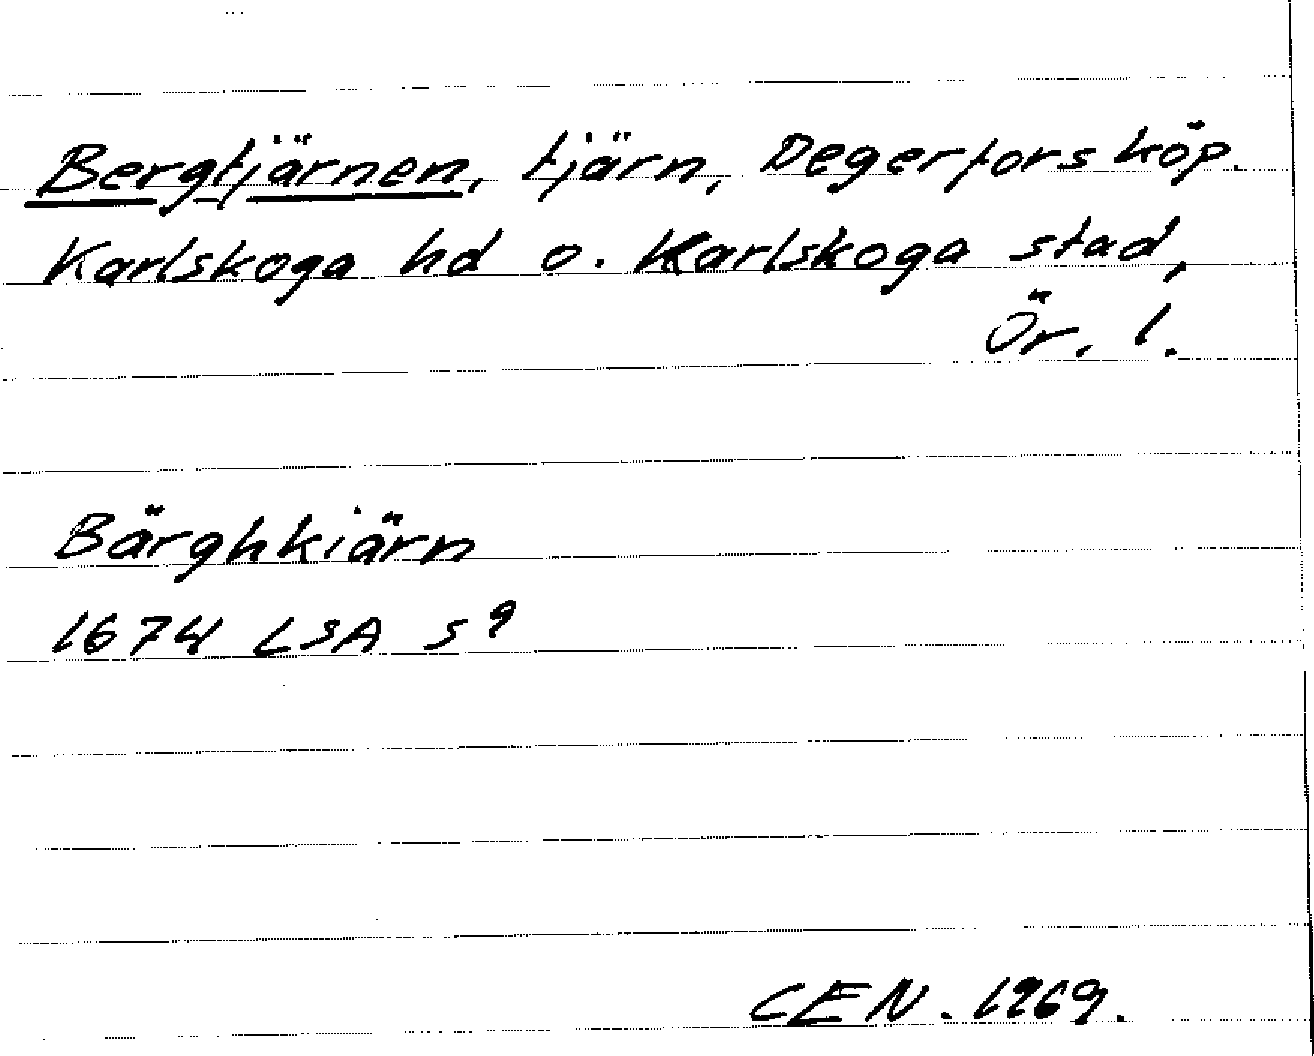 Bergtjärnen, tjärn, Degerfors köp.
Karlskoga hd o. Karlskoga stad,
Ör. l.
Bärghkiärn
1674 LSA s9
CEN. 1969.